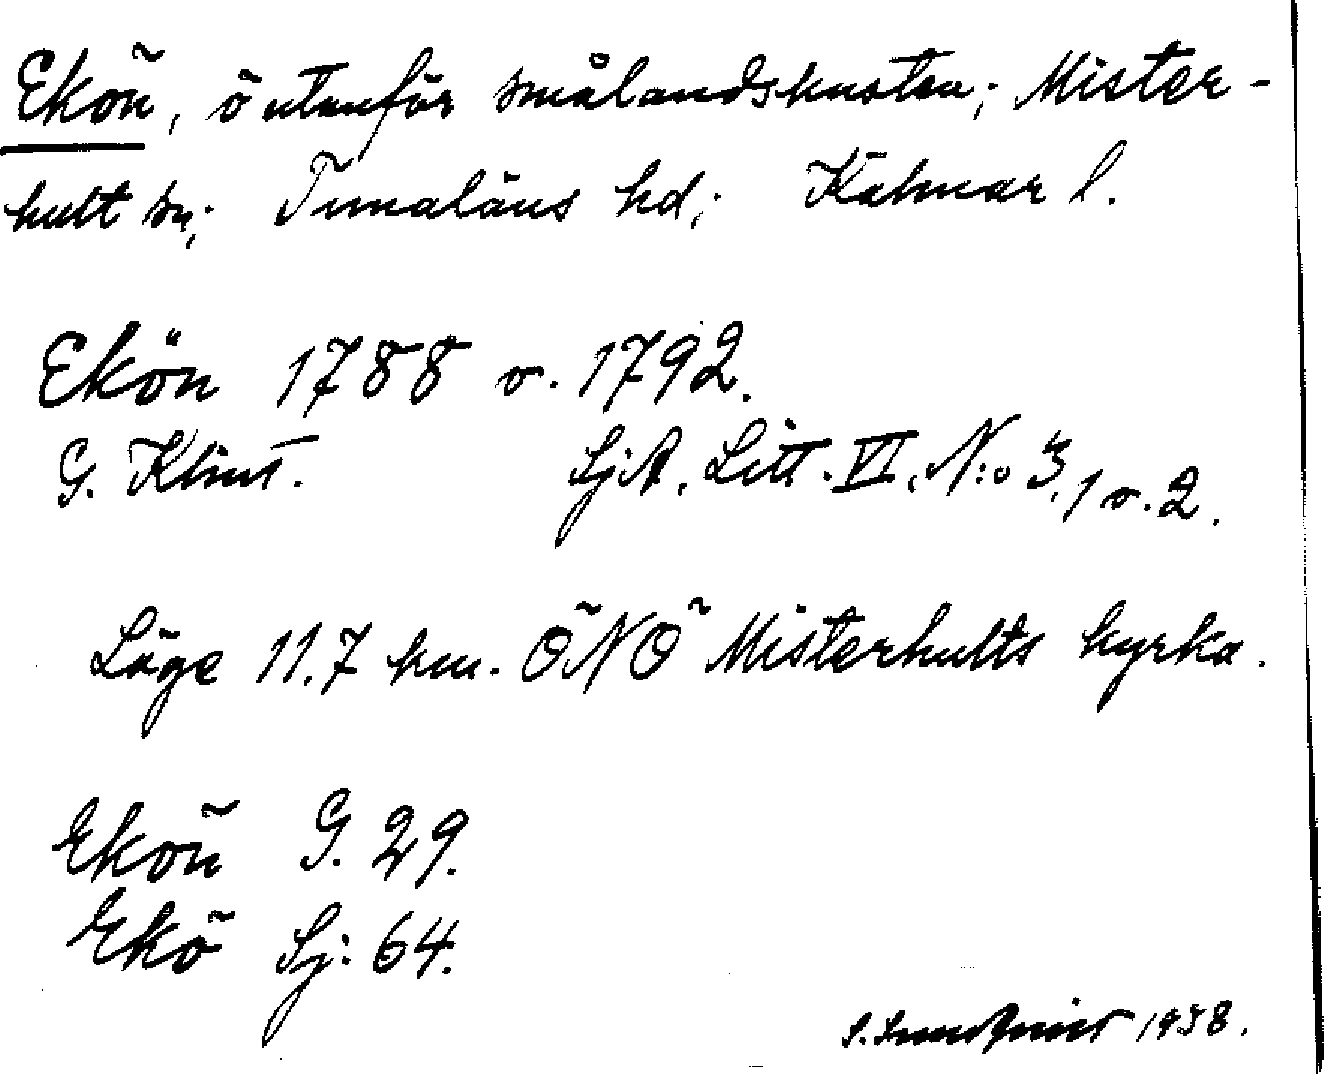 Ekön, ö utanför smålandskusten; Mister-
hult sn; Tunaläns hd; Kalmar l.
Ekön 1788 o. 1792.
G. Klint. SjA. Litt. VI, N:o 3, 1 o. 2.
Läge 11.7 km. ÖNÖ Misterhults kyrka.
Ekön G. 29.
Ekö Sj: 64.
1938.